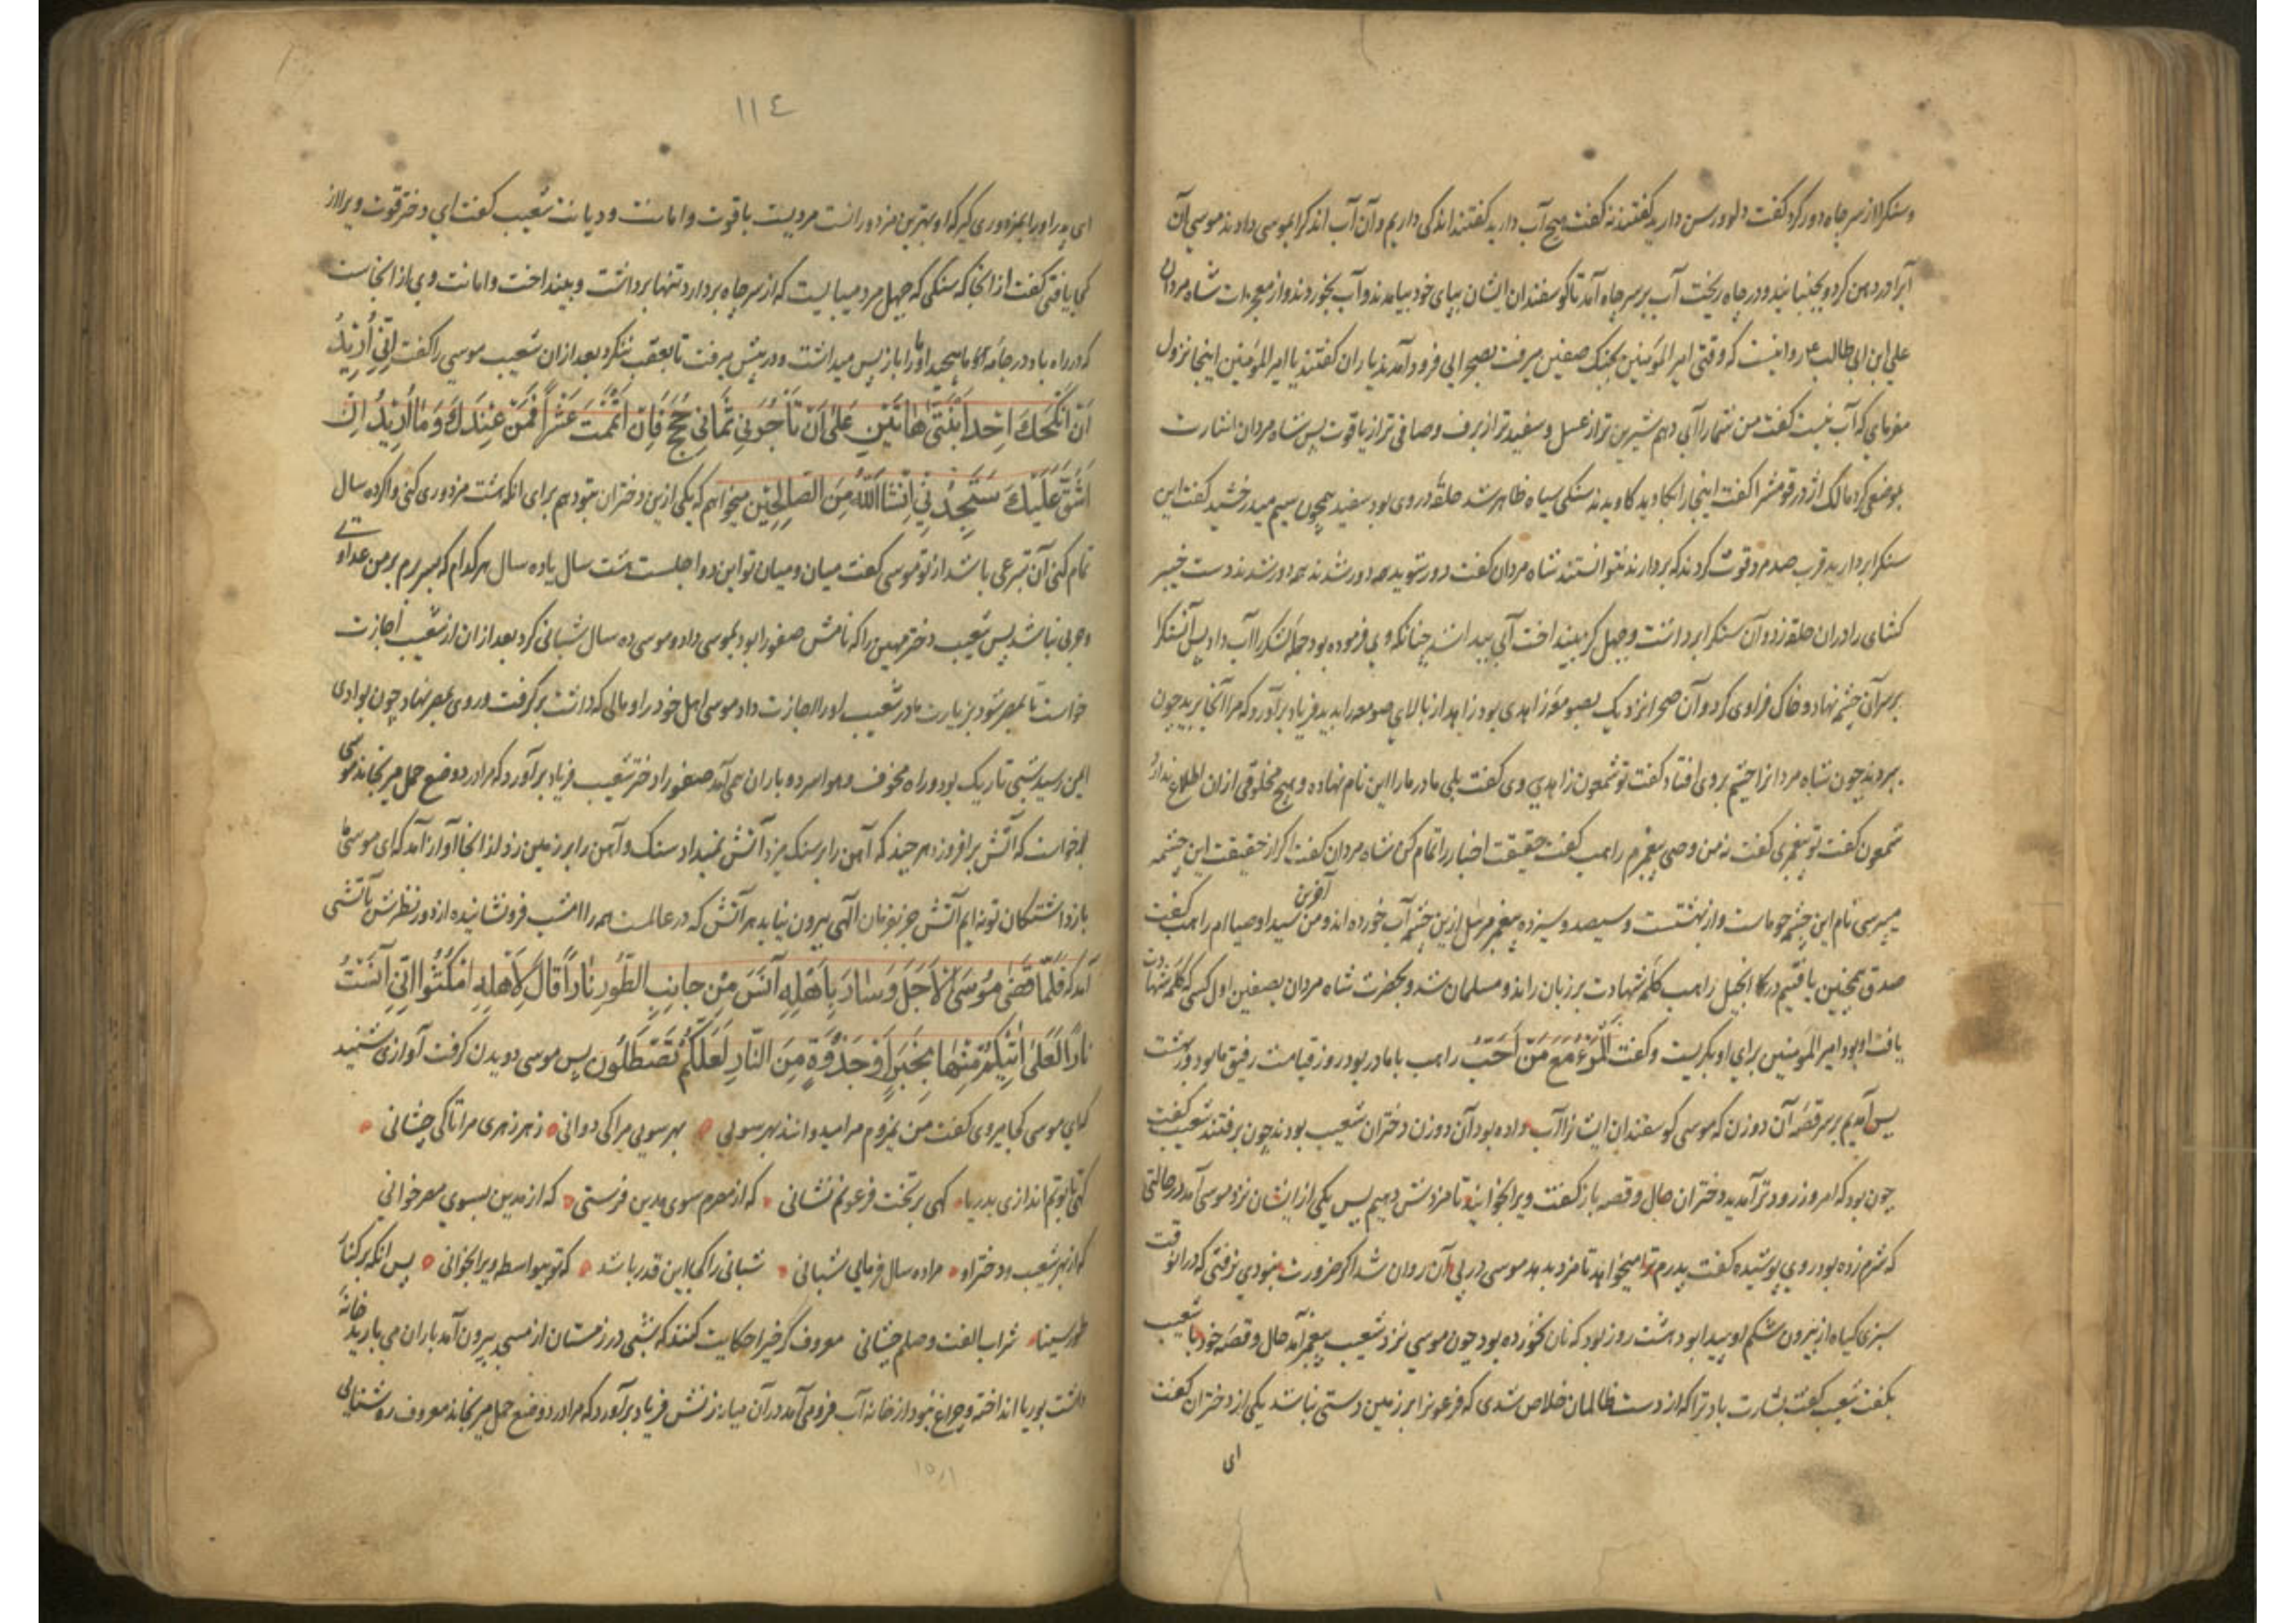 وسنکرا از سر چاه دور کرد کفت دلو و رسن دارید کفتند نه کفت هیچ آب دارید کفتند اندکی داریم و آن آب اندکرا بموسی دادند موسی آن
آبرا در دهن کرد و بجنبانید و در چاه ریخت آب بر سر چاه آمد تا کوسفندان ایشان بپای خود بیامدند و آب بخوردند و از معجزات شاه مردان
علی ابن ابی طالب ع روایتست که وقتی امیر المؤمنین بجنک صفین میرفت بصحرایی فرود آمدند یاران کفتند یا امیر المؤمنین اینجا نزول
مفرمای که آب نیست کفت من شما را آبی دهم شیرین تر از عسل و سفید تر از برف و صافی تر از یاقوت پس شاه مردان اشارت
بموضعی کرد مالک اژدر و قومش را کفت اینجا را بکاوید بکاویدند سنکی سیاه ظاهر شد حلقه در وی بود سفید همچون سیم میدرخشید کفت این
سنکرا بردارید قرب صد مرد قوت کردند که بردارند نتوانستند شاه مردان کفت دور شوید همه دور شدند دست خیبر
کشای را در آن حلقه زد و آن سنکرا برداشت و چهل کز بینداخت آبی پیدا شد چنانکه وی فرموده بود جمله لشکر را آب داد پس آن سنکرا
بر سر آن چشمه نهاد و خاک فراوی کرد و آن صحرا نزدیک بصومعه زاهدی بود زاهد از بالای صومعه بدید فریاد برآورد که مرا آنجا برید چون
ببردند چون شاه مردانرا چشم بر وی افتاد کفت تو شمعون زاهدی وی کفت بلی مادر مارا این نام نهاده و هیچ مخلوقی ازان اطلاع ندارد
شمعون کفت تو پیغمبری کفت نه من وصی پیغمبرم راهب کفت حقیقت اخبار را تمام کن شاه مردان کفت اکر از حقیقت این چشمه
میپرسی نام این چشمه حوماست و از بهشتست و سیصد و سیزده پیغمبر مرسل ازین چشمه آب خورده اند و من آخرین سید اوصیا ام راهب کفت
صدق همچنین یافتیم در انجیل راهب کلمه شهادت بر زبان راند و مسلمان شد و بحضرت شاه مردان بصفین اول کسی که کلمه شهادت
یافت او بود امیر المؤمنین برای او بکریست و کفت اَلْمَرْءُ مَعَ مَنْ اَحَبَّ راهب با ما در بود روز قیامت رفیق ما بود در بهشت
پس آمدیم بر سر قصه آن دو زن که موسی کوسفندان ایشانرا آب داده بود آن دو زن دختران شعیب بودند چون برفتند شعیب کفت
چون بود که امروز زودتر آمدید دختران حال و قصه باز کفتند کفت ویرا بخوانید تا مزدش دهیم پس یکی از ایشان نزد موسی آمد در حالتی
که شرم زده بود روی پوشیده کفت پدرم ترا میخواند تا مزد بدهد موسی در پی آن روان شد اکر ضرورت نبودی نرفتی که در آن وقت
سبزی کیاه از بیرون شکم او پیدا بود هشت روز بود که نان نخورده بود چون موسی نزد شعیب پیغمبر آمد حال و قصه خود با شعیب
بکفت شعیب کفت بشارت باد ترا که از دست ظالمان خلاص شدی که فرعونرا بر زمین دستی نباشد یکی از دختران کفت
ای
١١٤
ای پدر او را بمزدوری کیر که او بهترین مزدورانست مردیست با قوت و امانت و دیانت شعیب کفت ای دختر قوت ویرا از
کجا یافتی کفت از آنجا که سنکی که چهل مرد میبایست که از سر چاه بردارد تنها برداشت و بینداخت و امانت وی از انجاست
که در راه باد در جامه ما میپیچید او ما را باز پس میداشت و در پیش میرفت تا بعقب ننکرد بعد ازان شعیب موسی را کفت اِنّی اُرِیدُ
اَنْ اُنْکِحَکَ اِحْدَی ابْنَتَیَّ هَاتَیْنِ عَلٰی اَنْ تَأْجُرَنِی ثَمَانِیَ حِجَجٍ فَاِنْ اَتْمَمْتَ عَشْرًا فَمِنْ عِنْدِکَ وَمَا اُرِیدُ اَنْ
اَشُقَّ عَلَیْکَ سَتَجِدُنِی اِنْشَاءَ اللّٰهُ مِنَ الصَّالِحِینَ میخواهم که یکی ازین دختران بتو دهم برای آنکه هشت سال مزدوری کنی و اکر ده سال
تمام کنی آن تبرعی باشد از تو موسی کفت میان من و میان تو این دو اجلست هشت سال یا ده سال هر کدام که بسر برم بر من عداوتی
و حربی نباشد پس شعیب دختر مهین را که نامش صفورا بود بموسی داد و موسی ده سال شبانی کرد بعد ازان از شعیب اجازت
خواست تا بمصر شود بزیارت مادر شعیب او را اجازت داد موسی اهل خود را و مالی که داشت برکرفت و روی بمصر نهاد چون بوادی
ایمن رسید شبی تاریک بود و راه مخوف و هوا سرد و باران همی آمد صفورا دختر شعیب فریاد برآورد که مرا درد وضع حمل میرنجاند موسی
خواست که آتش برافروزد هر چند که آهن را بر سنک میزد آتش نمیداد سنک و آهن را بر زمین زد از انجا آواز آمد که ای موسی ما
بازداشتکان تو نه ایم آتش جز بفرمان الهی بیرون نیاید هر آتش که در عالمست همه را امشب فرونشانیده از دور نظرش بآتشی
آمد که فَلَمَّا قَضٰی مُوسَی الْاَجَلَ وَسَارَ بِاَهْلِهِ آنَسَ مِنْ جَانِبِ الطُّورِ نَارًا قَالَ لِاَهْلِهِ امْکُثُوا اِنِّی آنَسْتُ
نَارًا لَعَلِّی آتِیکُمْ مِنْهَا بِخَبَرٍ اَوْ جَذْوَةٍ مِنَ النَّارِ لَعَلَّکُمْ تَصْطَلُونَ پس موسی دویدن کرفت آوازی شنید
که ای موسی کجا میروی کفت من نمیروم مرا میدوانند بهر سویی بهر سویی مرا کی دوانی ز هر زهری مرا تا کی چشانی
کهی تابوتم اندازی بدریا کهی بر تخت فرعونم نشانی که از مصرم سوی مدین فرستی که از مدین بسوی مصر خوانی
که از بهر شعیب و دختر او مرا ده سال فرمایی شبانی شبانی را کجا این قدر باشد که تو بیواسطه ویرا بخوانی پس آنکه بر کنار
طور سینا شراب الفت وصلم چشانی معروف کرخی را حکایت کنند که شبی در زمستان از مسجد بیرون آمد باران می بارید خانهٔ
داشت بوریا انداخته و چراغ نبود از خانه آب فرو می آمد در آن میان زنش فریاد برآورد که مرا درد وضع حمل میرنجاند معروف روشنایی